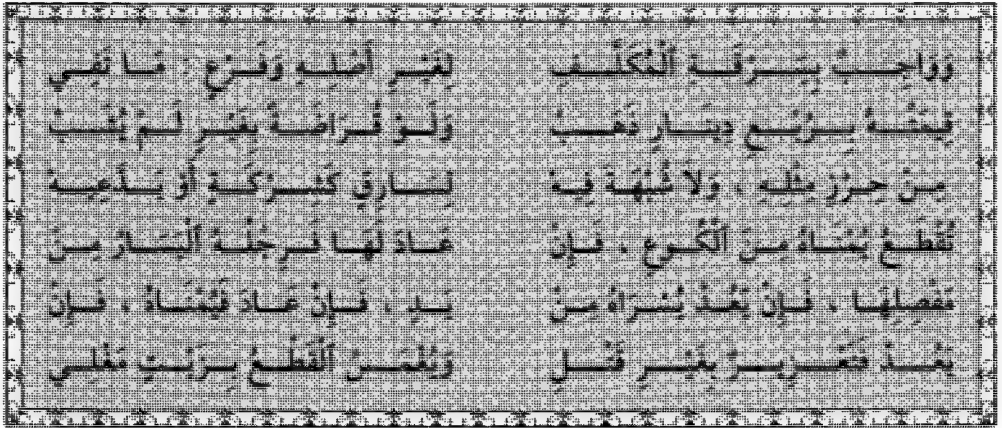 وَوَاجِبٌ بِسَرْقَةِ ٱلْمُكَلَّفِ لِغَيْرِ أَصْلِهِ وَفَرْعٍ ، مَا تَفِي
قِيمَتُهُ بِرُبْعِ دِينَارٍ ذَهَبْ وَلَوْ قُرَاضَةً بِغَيْرٍ لَمْ يُشَبْ
مِنْ حِرْزِ مِثْلِهِ ، وَلَا شُبْهَةَ فِيهْ لِسَارِقٍ كَشِرْكَةٍ أَوْ يَدَّعِيهْ
تُقْطَعُ يُمْنَاهُ مِنَ ٱلْكُوعِ ، فَإِنْ عَادَ لَهَا فَرِجْلُهُ ٱلْيَسَارُ مِنْ
مَفْصِلِهَا ، فَإِنْ يَعُدْ يُسْرَاهُ مِنْ يَدٍ ، فَإِنْ عَادَ فَيُمْنَاهُ ، فَإِنْ
يَعُدْ فَتَعْزِيرٌ بِغَيْرِ قَتْلِ وَيُغْمَسُ ٱلْقَطْعُ بِزَيْتٍ مَغْلِي